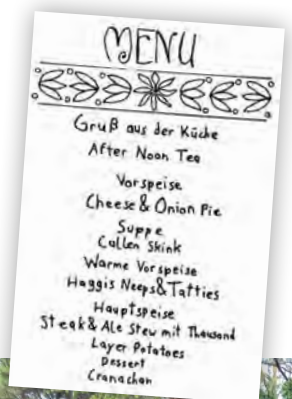 MENU
Gruß aus der Küche
After Noon Tea
Vorspeise
Cheese & Onion Pie
Suppe
Cullen Skink
Warme Vorspeise
Haggis Neeps & Tatties
Hauptspeise
Steak & Ale Stew mit Thousand
Layer Potatoes
Dessert
Cranachan